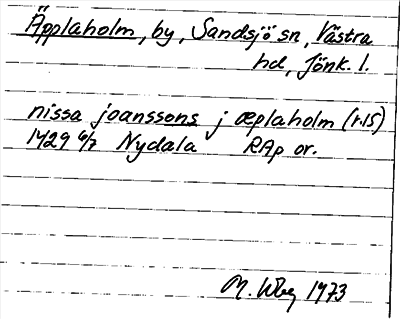 Äpplaholm, by, Sandsjö sn, Västra
hd, Jönk. l.
nissa joanssons j æplaholm (r.15)
1429 6/7 Nydala RAp or.
M. Wbg 1973